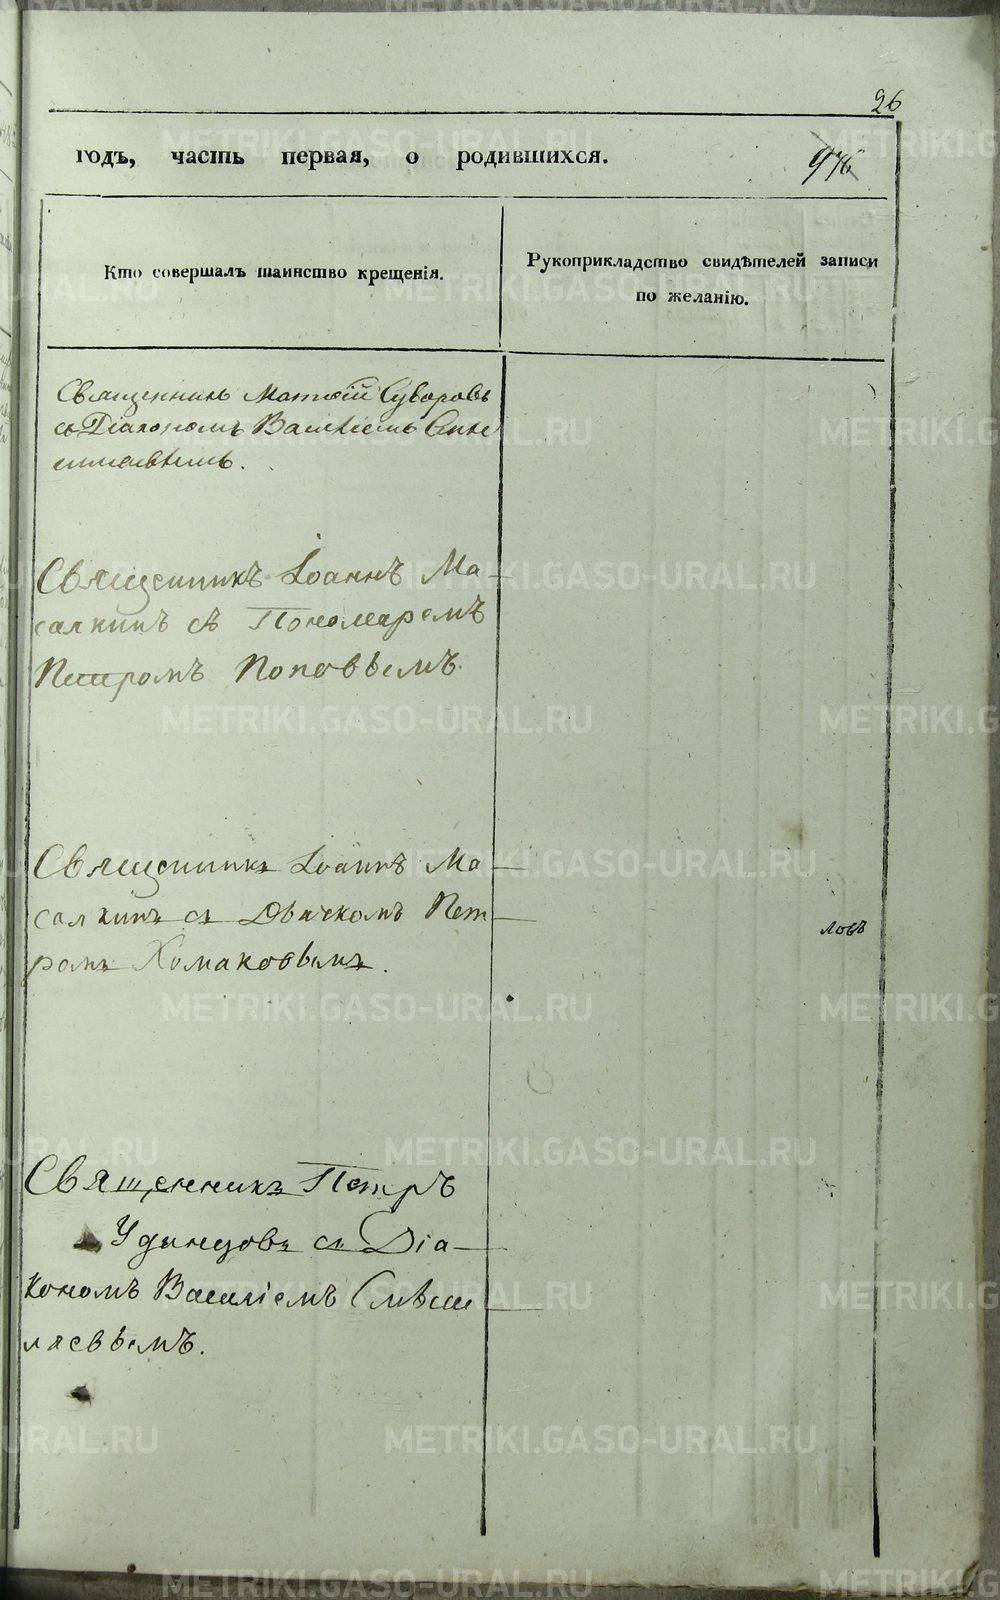 26
годъ, часть первая, о родившихся.
976
Кто совершалъ таинство крещенія.
Рукоприкладство свидѣтелей записи
по желанію.
Священникъ Матѳій Суворовъ
съ Діакономъ Василіемъ
Священникъ Іоаннъ Ма-
салкинъ съ Пономаремъ
Петромъ Поповымъ.
Священникъ Іоаннъ Ма-
салкинъ съ Дьячкомъ Пет-
ромъ Хомаковымъ.
ловъ
Священникъ Петръ
Удинцовъ съ Діа-
кономъ Василіемъ
METRIKI.GASO-URAL.RU